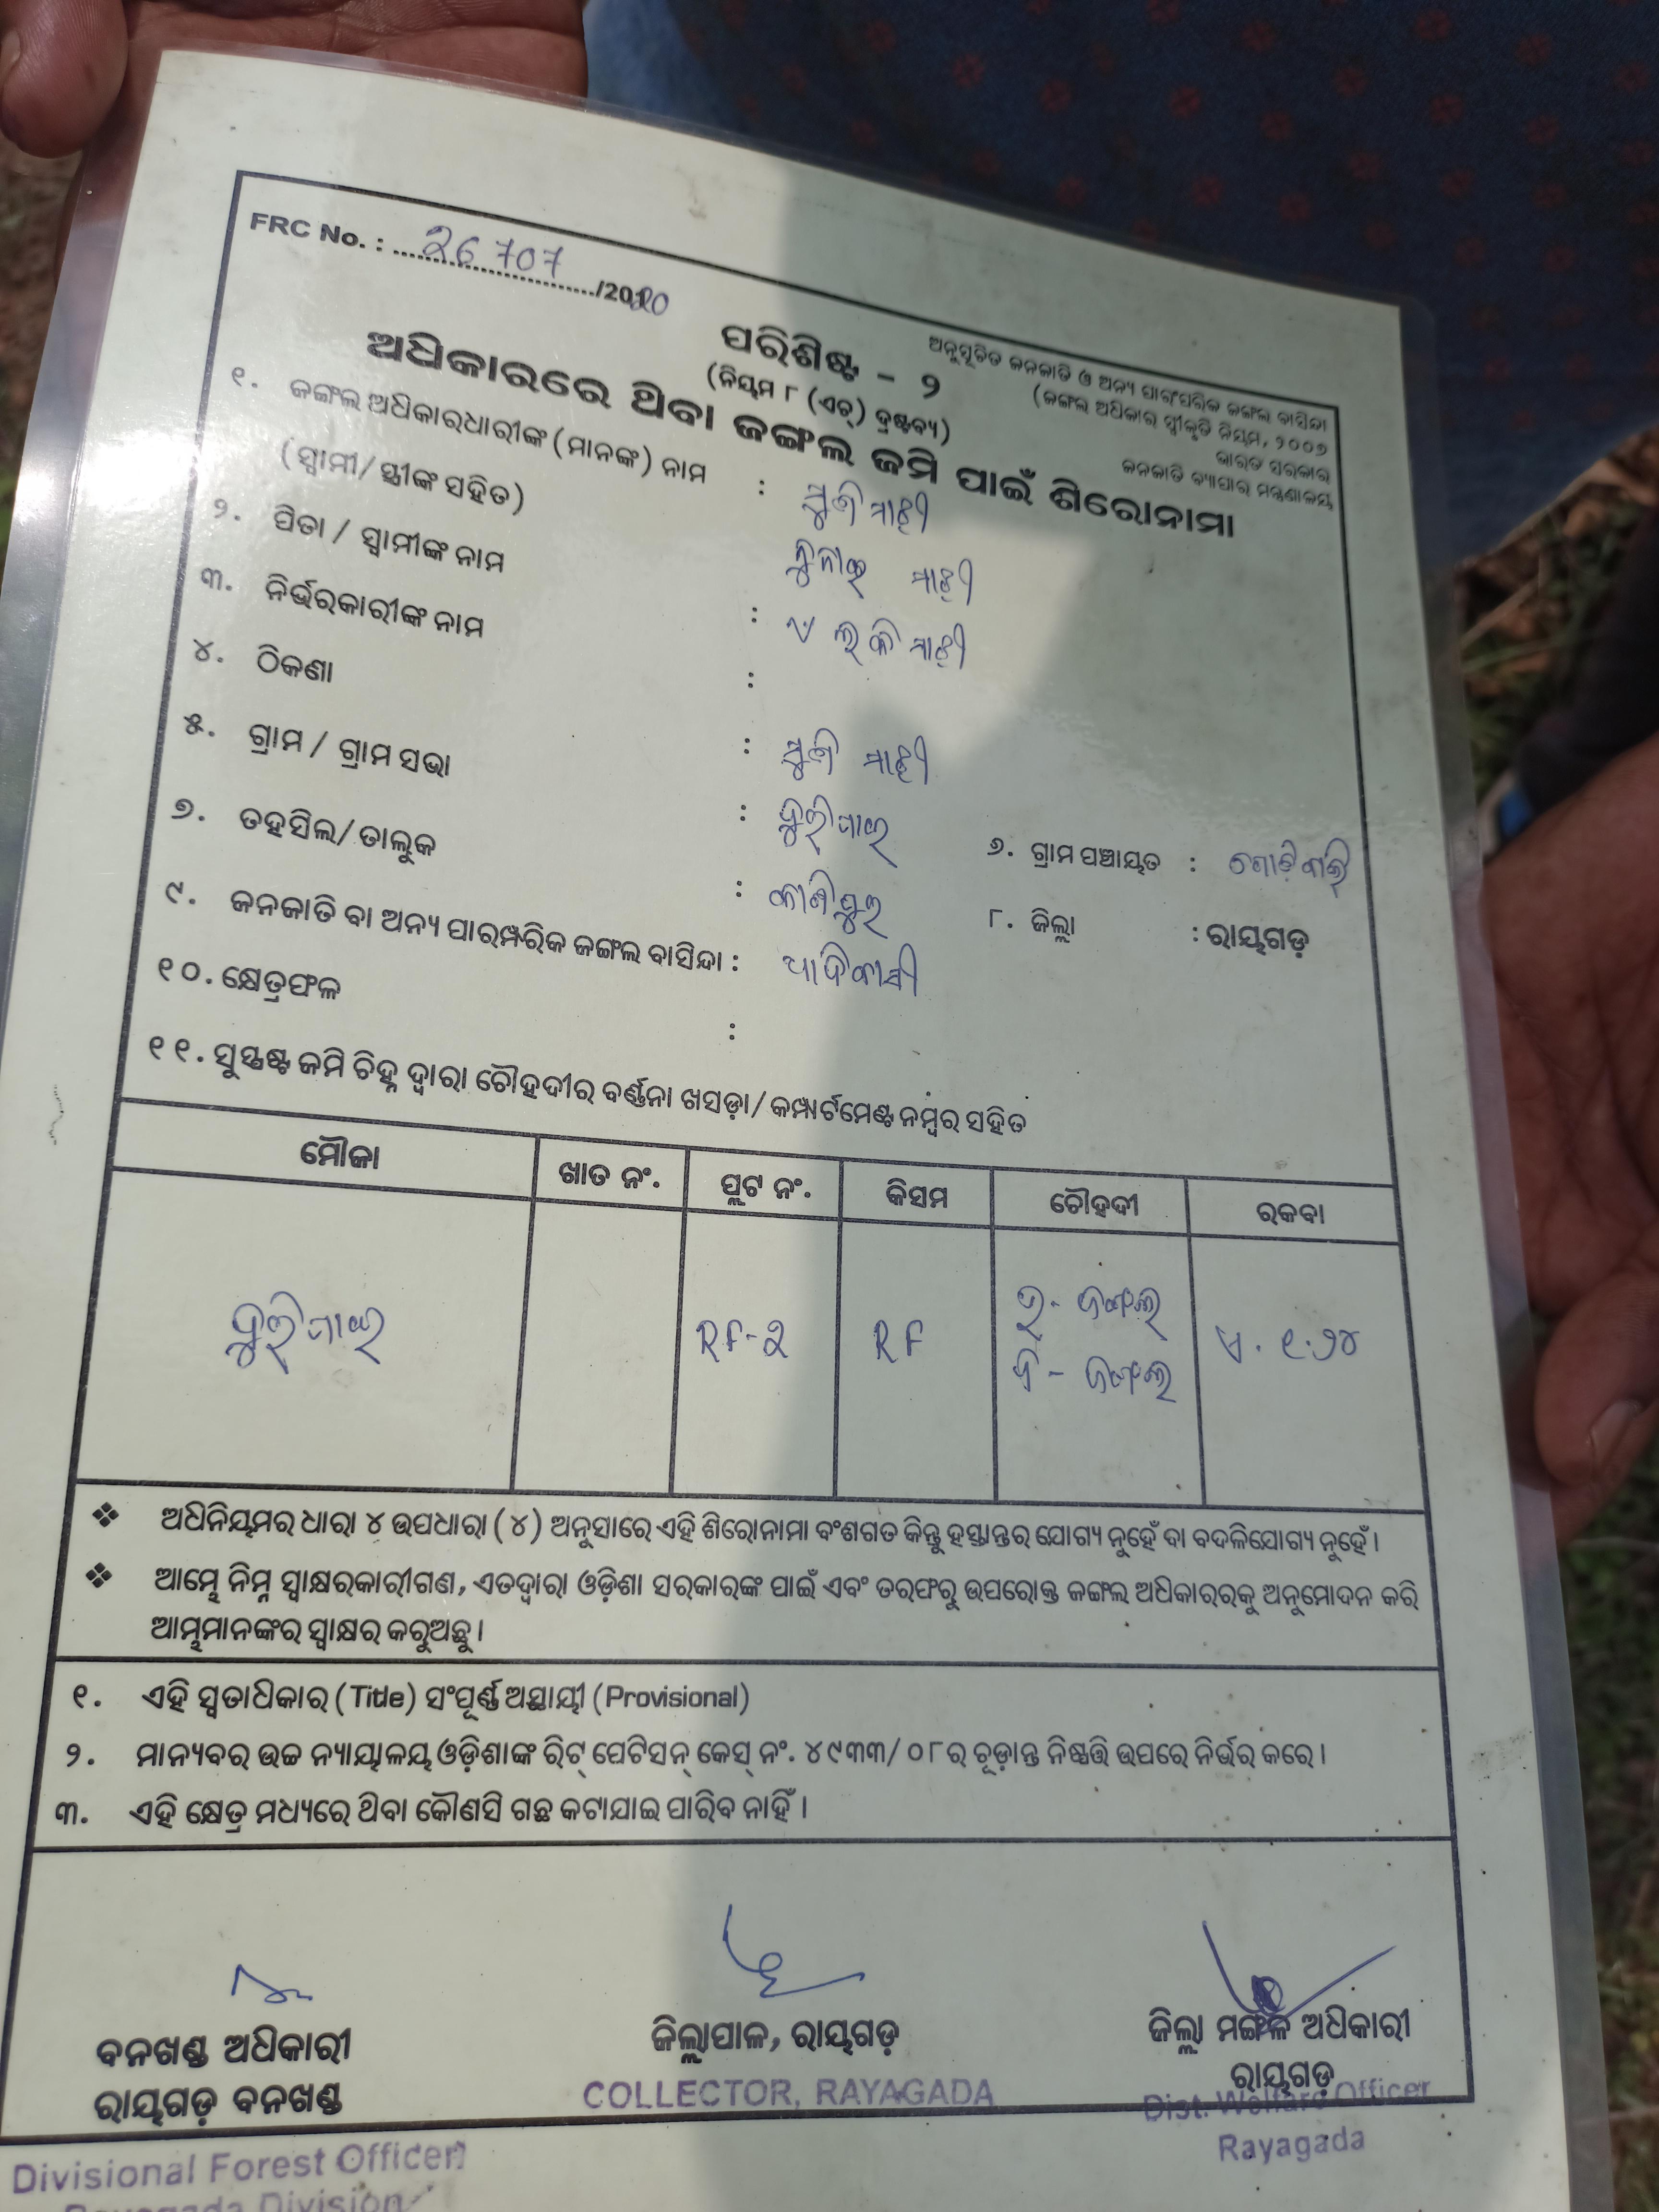 FRC No. : 26707/2020
ଅନୁସୂଚିତ ଜନଜାତି ଓ ଅନ୍ୟ ପାରଂପରିକ ଜଙ୍ଗଲ ବାସିନ୍ଦା
(ଜଙ୍ଗଲ ଅଧିକାର ସ୍ୱୀକୃତି ନିୟମ, ୨୦୦୭
ଭାରତ ସରକାର
ଜନଜାତି ବ୍ୟାପାର ମନ୍ତ୍ରଣାଳୟ
ପରିଶିଷ୍ଟ - ୨
(ନିୟମ ୮ (ଏଚ୍) ଦ୍ରଷ୍ଟବ୍ୟ)
ଅଧିକାରରେ ଥିବା ଜଙ୍ଗଲ ଜମି ପାଇଁ ଶିରୋନାମା
୧. ଜଙ୍ଗଲ ଅଧିକାରଧାରୀଙ୍କ (ମାନଙ୍କ) ନାମ : ମାଝୀ
(ସ୍ୱାମୀ/ ସ୍ତ୍ରୀଙ୍କ ସହିତ)
୨. ପିତା / ସ୍ୱାମୀଙ୍କ ନାମ : ମାଝୀ
୩. ନିର୍ଭରକାରୀଙ୍କ ନାମ : ମାଝୀ
୪. ଠିକଣା : ମାଝୀ
୫. ଗ୍ରାମ / ଗ୍ରାମ ସଭା :
୬. ଗ୍ରାମ ପଞ୍ଚାୟତ :
୭. ତହସିଲ/ ତାଲୁକ : କାଶୀପୁର
୮. ଜିଲ୍ଲା : ରାୟଗଡ଼
୯. ଜନଜାତି ବା ଅନ୍ୟ ପାରମ୍ପରିକ ଜଙ୍ଗଲ ବାସିନ୍ଦା : ଆଦିବାସୀ
୧୦. କ୍ଷେତ୍ରଫଳ :
୧୧. ସୁସ୍ପଷ୍ଟ ଜମି ଚିହ୍ନ ଦ୍ୱାରା ଚୌହଦୀର ବର୍ଣ୍ଣନା ଖସଡ଼ା/ କମ୍ପାର୍ଟମେଣ୍ଟ ନମ୍ବର ସହିତ
ମୌଜା ଖାତ ନଂ. ପ୍ଲଟ ନଂ. କିସମ ଚୌହଦୀ ରକବା
RF-2 RF ଉ - ଜଙ୍ଗଲ ଏ. ୧.୨୪
ଦ - ଜଙ୍ଗଲ
❖ ଅଧିନିୟମର ଧାରା ୪ ଉପଧାରା (୪) ଅନୁସାରେ ଏହି ଶିରୋନାମା ବଂଶଗତ କିନ୍ତୁ ହସ୍ତାନ୍ତର ଯୋଗ୍ୟ ନୁହେଁ ବା ବଦଳିଯୋଗ୍ୟ ନୁହେଁ ।
❖ ଆମ୍ଭେ ନିମ୍ନ ସ୍ୱାକ୍ଷରକାରୀଗଣ, ଏତଦ୍ୱାରା ଓଡ଼ିଶା ସରକାରଙ୍କ ପାଇଁ ଏବଂ ତରଫରୁ ଉପରୋକ୍ତ ଜଙ୍ଗଲ ଅଧିକାରରକୁ ଅନୁମୋଦନ କରି
ଆମ୍ଭମାନଙ୍କର ସ୍ୱାକ୍ଷର କରୁଅଛୁ ।
୧. ଏହି ସ୍ୱତାଧିକାର (Title) ସଂପୂର୍ଣ୍ଣ ଅସ୍ଥାୟୀ (Provisional)
୨. ମାନ୍ୟବର ଉଚ୍ଚ ନ୍ୟାୟାଳୟ ଓଡ଼ିଶାଙ୍କ ରିଟ୍ ପେଟିସନ୍ କେସ୍ ନଂ. ୪୯୩୩/ ୦୮ର ଚୂଡ଼ାନ୍ତ ନିଷ୍ପତ୍ତି ଉପରେ ନିର୍ଭର କରେ ।
୩. ଏହି କ୍ଷେତ୍ର ମଧ୍ୟରେ ଥିବା କୌଣସି ଗଛ କଟାଯାଇ ପାରିବ ନାହିଁ ।
ବନଖଣ୍ଡ ଅଧିକାରୀ
ରାୟଗଡ଼ ବନଖଣ୍ଡ
Divisional Forest Officer
Rayagada Division
ଜିଲ୍ଲାପାଳ, ରାୟଗଡ଼
COLLECTOR, RAYAGADA
ଜିଲ୍ଲା ମଙ୍ଗଳ ଅଧିକାରୀ
ରାୟଗଡ଼
Dist. Welfare Officer
Rayagada